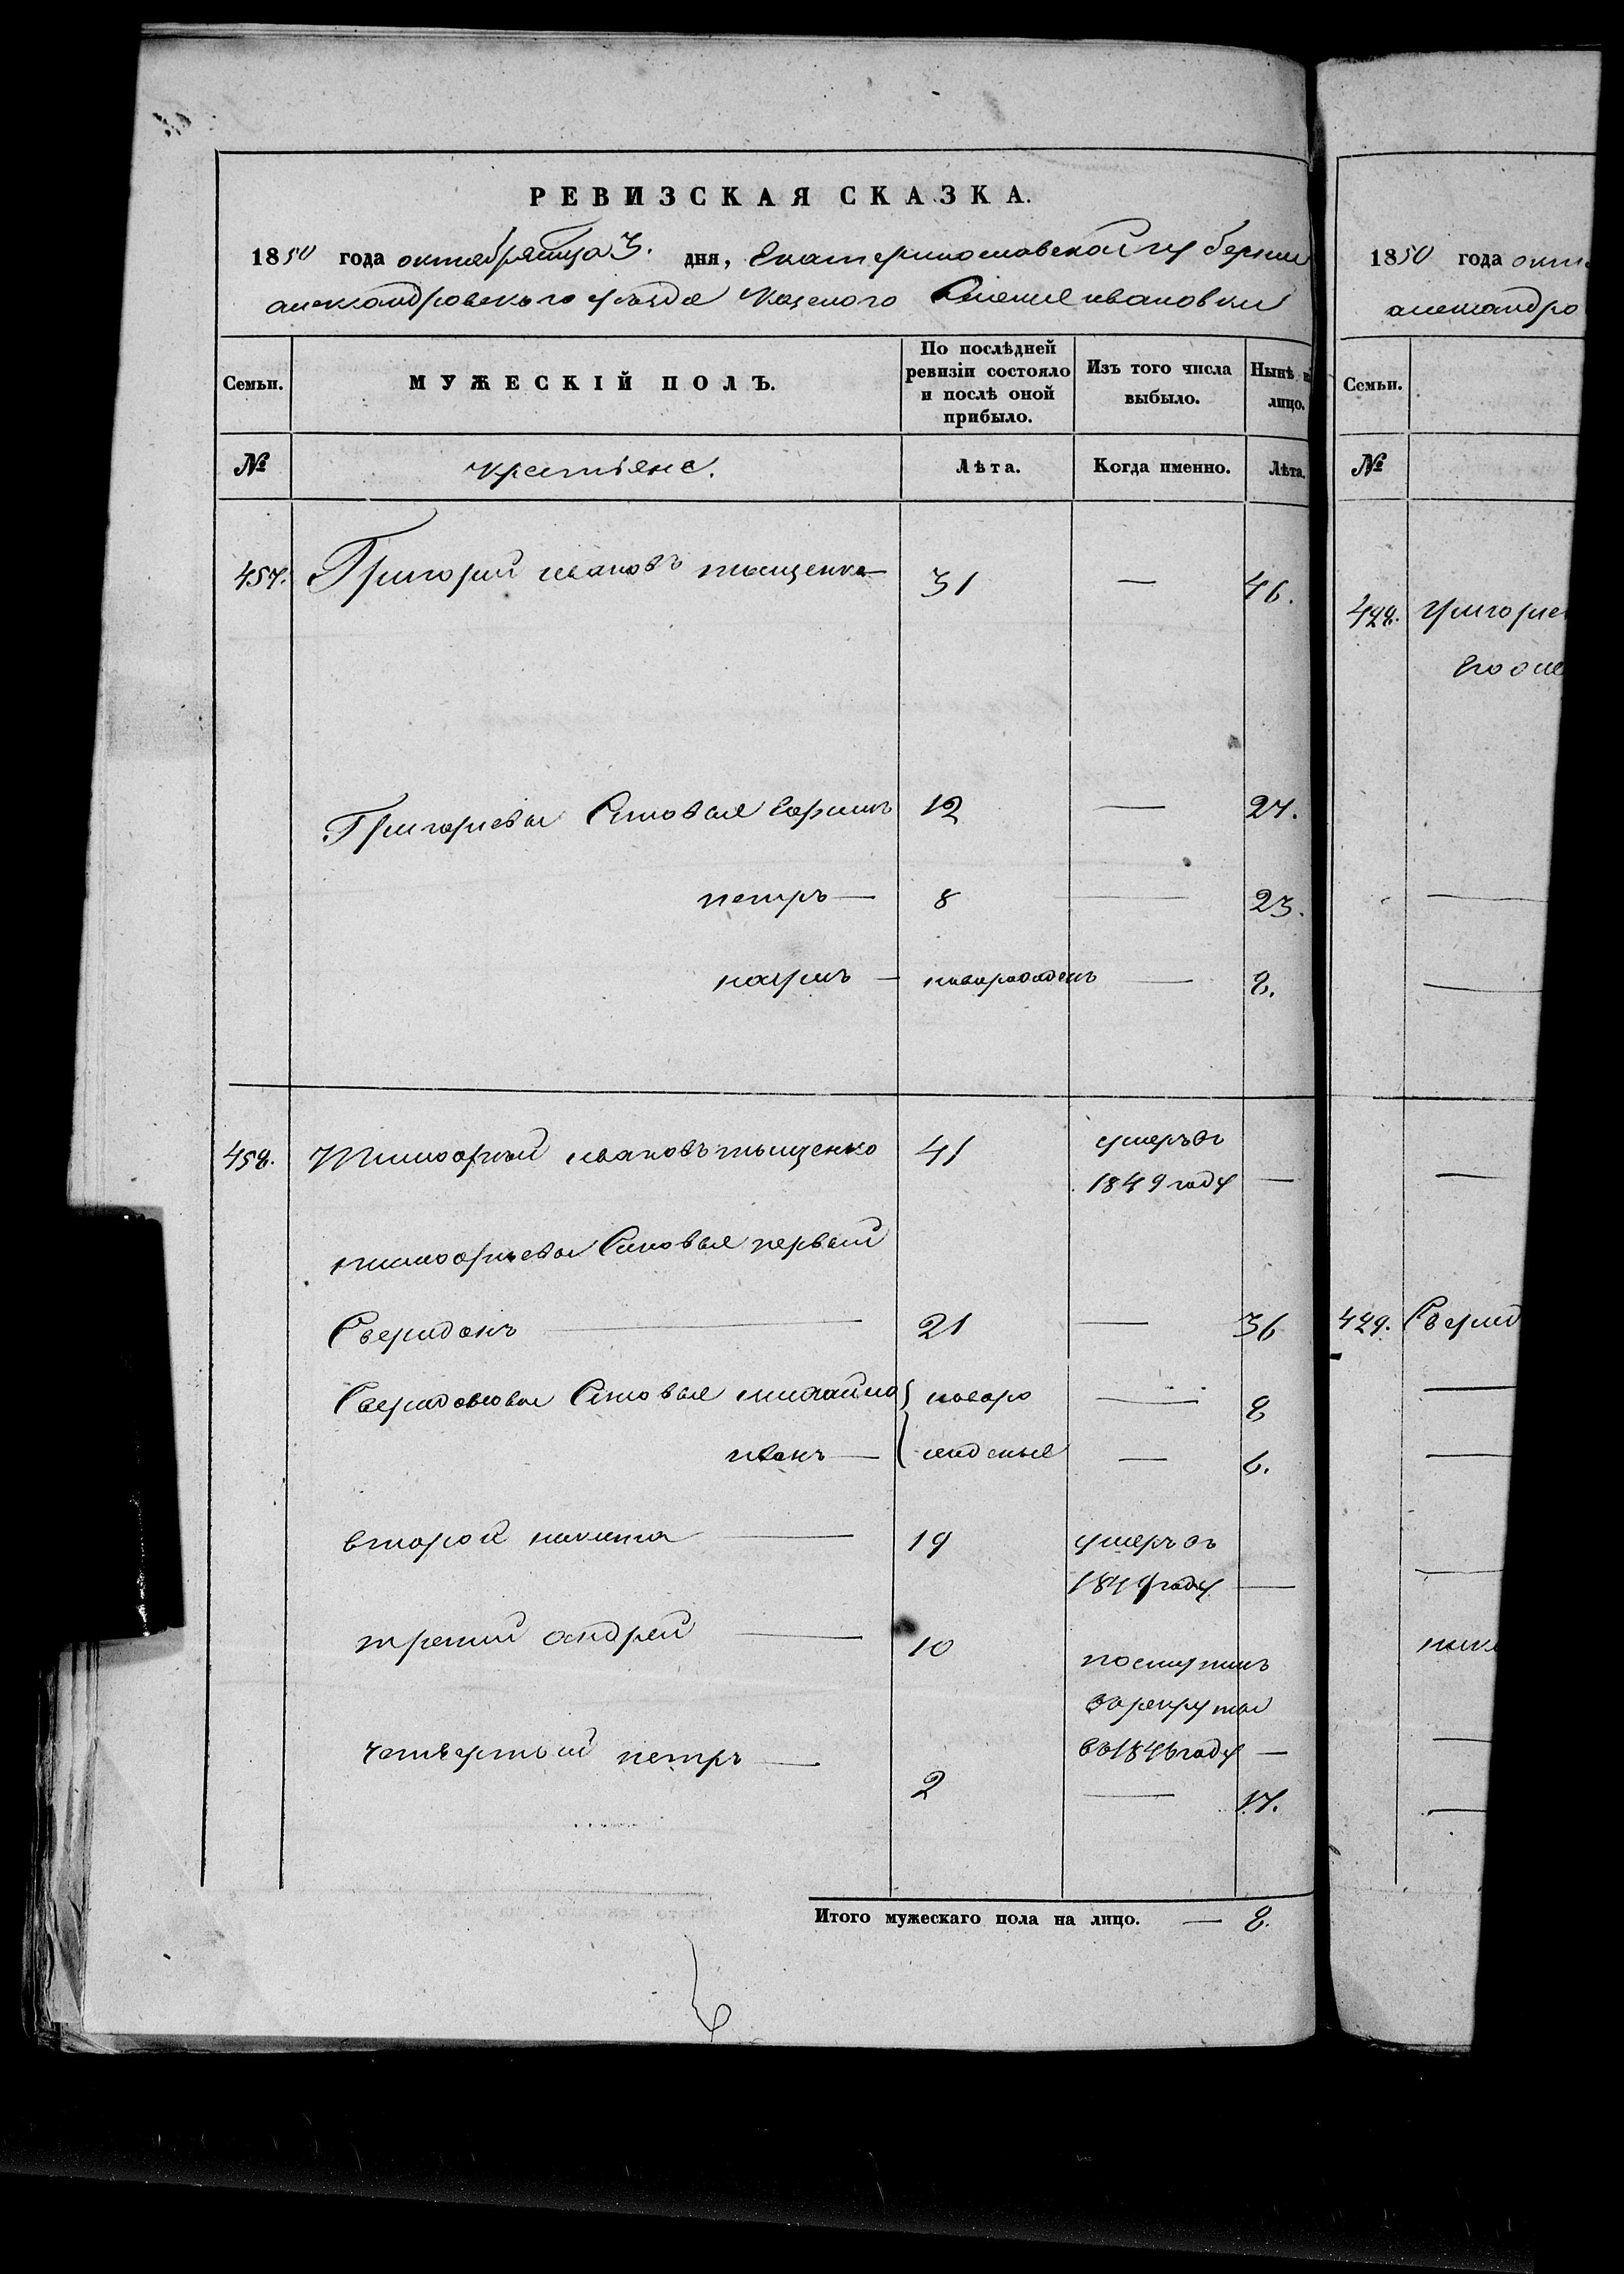 РЕВИЗСКАЯ СКАЗКА.
1850 года октября 3. дня, Екатеринославской губернии
александровского уезда казеного Силения ивановки
Семьи. МУЖЕСКІЙ ПОЛЪ. По послѣдней ревизіи состояло и послѣ оной прибыло. Изъ того числа выбыло. Нынѣ на лицо.
№ крестьяне. Лѣта. Когда именно. Лѣта.
457. Григорий ивановъ тыщенко 31 — 46.
Григориевы Сыновья 12 — 27.
петръ — 8 — 23.
наумъ — новорожденъ — 8.
458. Тимофей ивановъ тыщенко 41 умеръ въ
1849 году —
тимофеевы Сыновья первый
Свиридонъ — 21 — 36
Свиридоновы Сыновья михайло } новоро — 8
иванъ — { жденые — 6.
второй никита — 19 умеръ въ
1849 году —
третий андрей — 10 поступилъ
въ рекруты
въ 1846 году —
четвертый петръ — 2 — 17.
Итого мужескаго пола на лицо. — 8.
1850 года окт
александро
Семьи.
№
428. григорие
Его
429. Свирид